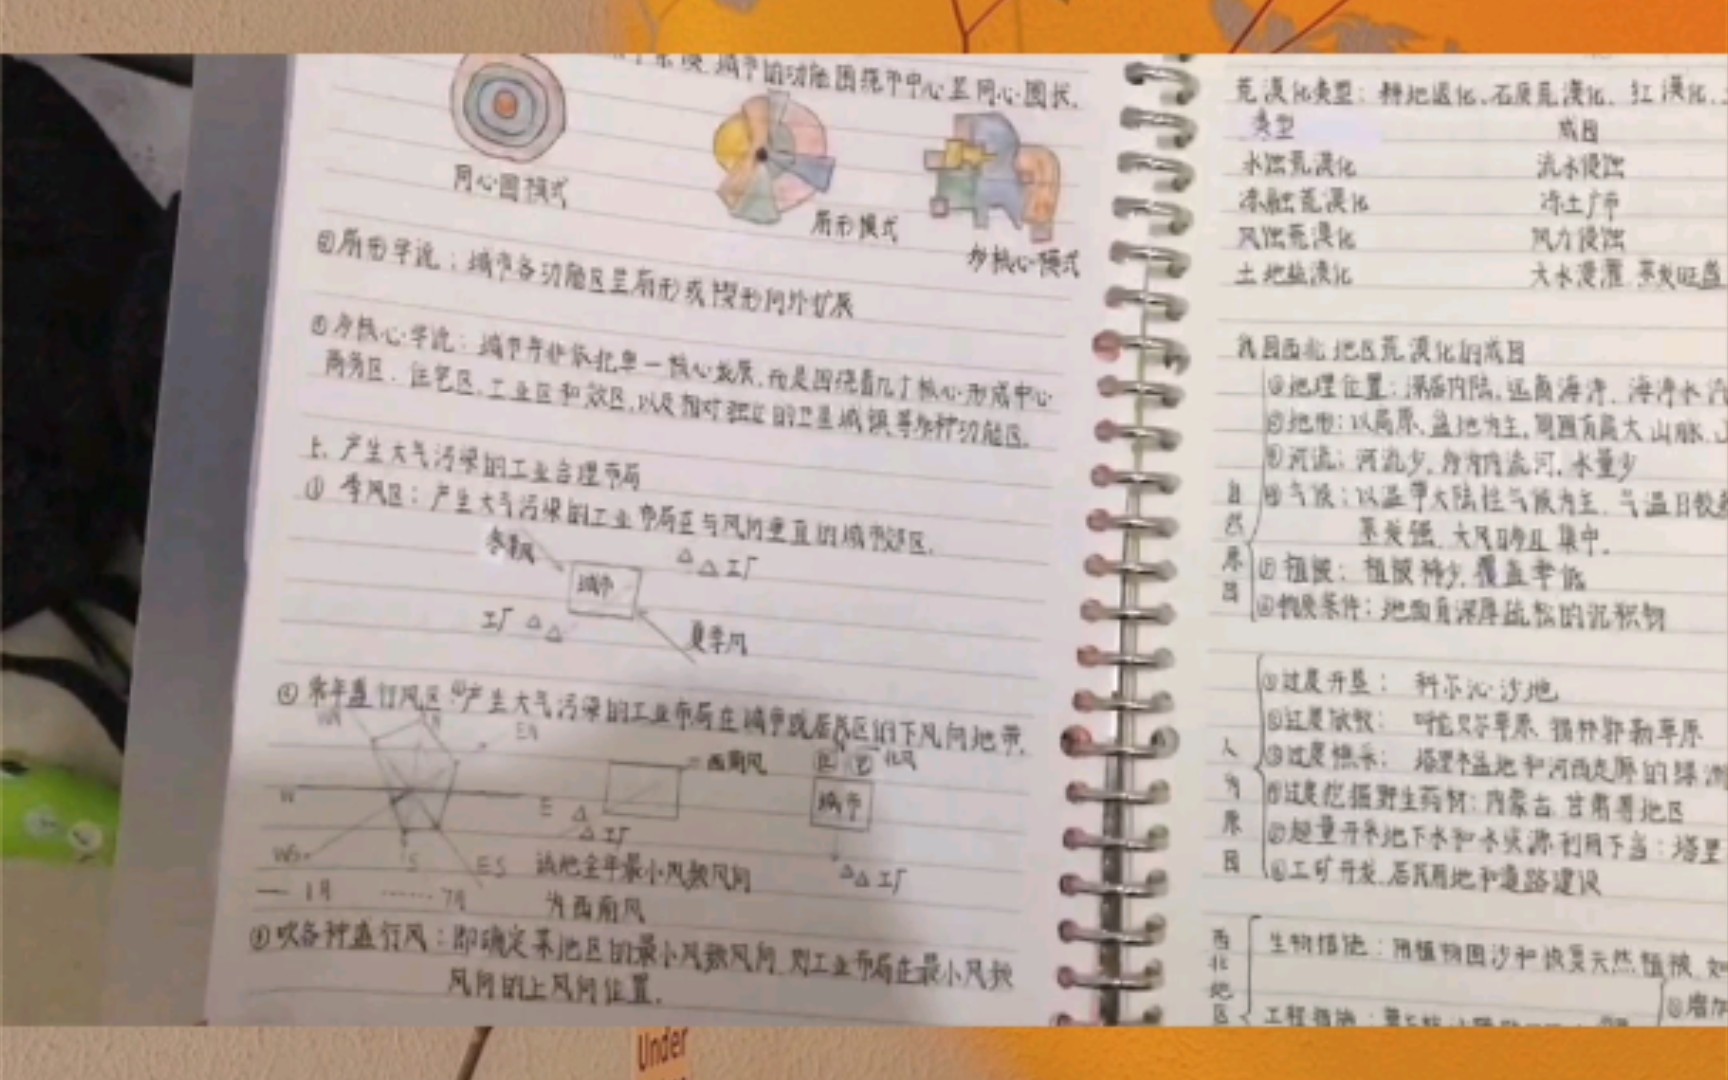 城市的功能围绕市中心呈同心圆状.
同心圆模式
扇形模式
多核心模式
②扇形学说：城市各功能区呈扇形或楔形向外扩展
③多核心学说：城市并非依北单一核心发展,而是围绕着几个核心形成中心
商务区、住宅区、工业区和郊区,以及相对独立的卫星城镇等各种功能区.
上.产生大气污染的工业合理布局
① 季风区：产生大气污染的工业布局在与风向垂直的城市郊区.
冬季风
城市
工厂
工厂
夏季风
② 常年盛行风区:①产生大气污染的工业布局在城市或居民区的下风向地带.
WN
N
EN
W
E
WS
S
ES
西南风
北风
城市
工厂
工厂
该地全年最小风频风向
为西南风
— 1月 ······ 7月
③吹各种盛行风：即确定某地区的最小风频风向,则工业布局在最小风频
风向的上风向位置.
荒漠化类型：耕地退化、石质荒漠化、红漠化、
类型 成因
水蚀荒漠化 流水侵蚀
冻融荒漠化 冻土广布
风蚀荒漠化 风力侵蚀
土地盐渍化 大水漫灌,蒸发旺盛
我国西北地区荒漠化的成因
自然原因
①地理位置：深居内陆,远离海洋,海洋水汽
②地形：以高原、盆地为主,周围有高大山脉,
③河流：河流少,多为内流河,水量少
④气候：以温带大陆性气候为主,气温日较差
蒸发强,大风日多且集中.
⑤植被：植被稀少,覆盖率低
⑥物质条件：地面有深厚疏松的沉积物
人为原因
①过度开垦： 科尔沁沙地
②过度放牧： 呼伦贝尔草原、锡林郭勒草原
③过度樵采： 塔里木盆地和河西走廊的绿洲
④过度挖掘野生药材：内蒙古、甘肃等地区
⑤超量开采地下水和水资源利用不当：塔里
⑥工矿开发、居民用地和道路建设
西北地区
生物措施：用植物固沙和恢复天然植被,如
工程措施：
①增加
Under